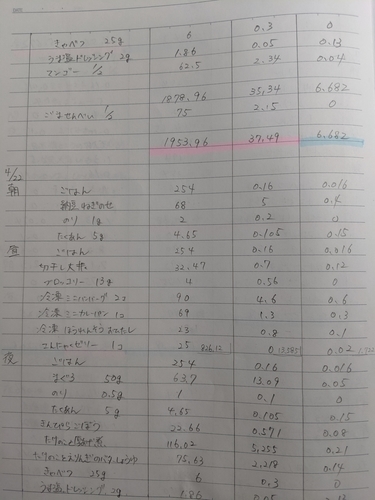 きゃべつ 25g 6 0.3 0
うま塩ドレッシング 2g 1.86 0.05 0.13
マンゴー 1/2 62.5 2.34 0.04
1878.96 35.34 6.682
ごませんべい 1/2 75 2.15 0
1953.96 37.49 6.682
4/22
朝 ごはん 254 0.16 0.016
納豆 ねぎのせ 68 5 0.4
のり 1g 2 0.2 0
たくあん 5g 4.65 0.105 0.15
昼 ごはん 254 0.16 0.016
切干し大根 32.47 0.7 0.12
ブロッコリー 13g 4 0.56 0
冷凍 ミニハンバーグ 2コ 90 4.6 0.6
冷凍 ミニカレーパン 1コ 69 1.3 0.3
冷凍 ほうれんそうおひたし 23 0.8 0.1
こんにゃくゼリー 1コ 25 826.12 0 13.585 0.02
夜 ごはん 254 0.16 0.016
まぐろ 50g 63.7 13.09 0.05
のり 0.5g 1 0.1 0
たくあん 5g 4.65 0.105 0.15
きんぴらごぼう 22.66 0.571 0.08
たけのこと厚揚げ煮 116.02 5.255 0.21
たけのことえりんぎのバターしょうゆ 75.63 2.218 0.14
きゃべつ 25g 6 0.3 0
うま塩ドレッシング 2g 1.86 0.05 0.13